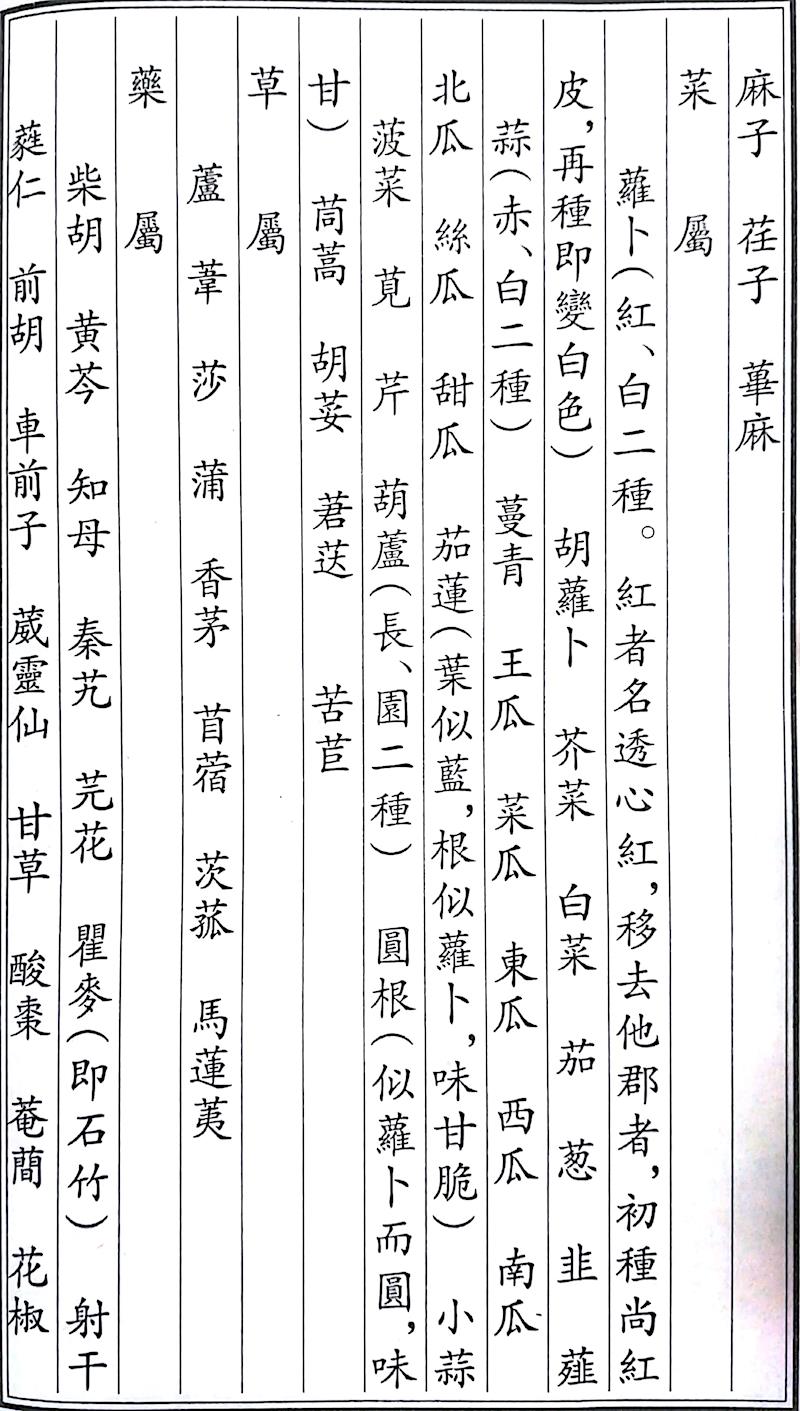 麻子　荏子　萆麻
菜　　屬
蘿卜（紅、白二種。紅者名透心紅，移去他郡者，初種尚紅
皮，再種即變白色）　胡蘿卜　芥菜　白菜　茄　葱　韭　薤
蒜（赤、白二種）　蔓青　王瓜　菜瓜　東瓜　西瓜　南瓜
北瓜　絲瓜　甜瓜　茄蓮（葉似藍，根似蘿卜，味甘脆）　小蒜
菠菜　莧　芹　葫蘆（長、園二種）　圓根（似蘿卜而圓，味
甘）　茼蒿　胡荽　莙荙　苦苣
草　　屬
蘆　葦　莎　蒲　香茅　苜蓿　茨菰　馬蓮荑
藥　　屬
柴胡　黄芩　知母　秦艽　芫花　瞿麥（即石竹）　射干
蕤仁　前胡　車前子　葳靈仙　甘草　酸棗　菴藺　花椒